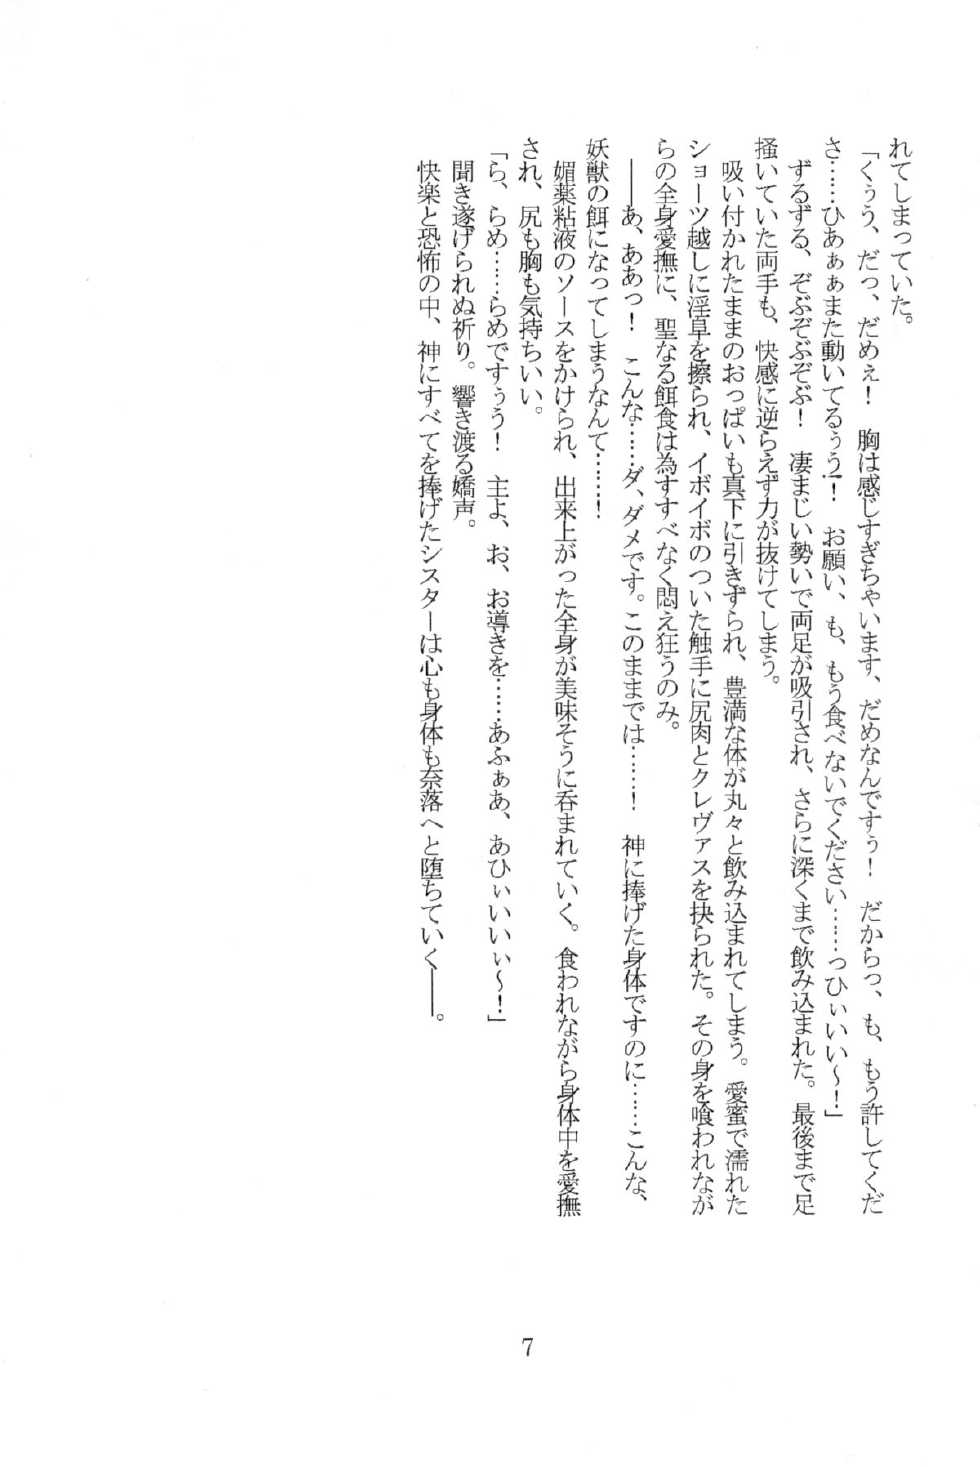 れてしまっていた。
「くぅう、だっ、だめぇ！　胸は感じすぎちゃいます、だめなんですぅ！　だからっ、も、もう許してくだ
さ……ひあぁぁまた動いてるぅう!!　お願い、も、もう食べないでください……っひぃいい～！」
　ずるずる、ぞぶぞぶぞぶ！　凄まじい勢いで両足が吸引され、さらに深くまで飲み込まれた。最後まで足
掻いていた両手も、快感に逆らえず力が抜けてしまう。
　吸い付かれたままのおっぱいも真下に引きずられ、豊満な体が丸々と飲み込まれてしまう。愛蜜で濡れた
ショーツ越しに淫阜を擦られ、イボイボのついた触手に尻肉とクレヴァスを抉られた。その身を喰われなが
らの全身愛撫に、聖なる餌食は為すすべなく悶え狂うのみ。
　――あ、ああっ！　こんな……ダ、ダメです。このままでは……！　神に捧げた身体ですのに……こんな、
妖獣の餌になってしまうなんて……！
　媚薬粘液のソースをかけられ、出来上がった全身が美味そうに呑まれていく。食われながら身体中を愛撫
され、尻も胸も気持ちいい。
「ら、らめ……らめですぅう！　主よ、お、お導きを……あふぁあ、あひぃいいぃ～！」
　聞き遂げられぬ祈り。響き渡る嬌声。
　快楽と恐怖の中、神にすべてを捧げたシスターは心も身体も奈落へと堕ちていく――。
7